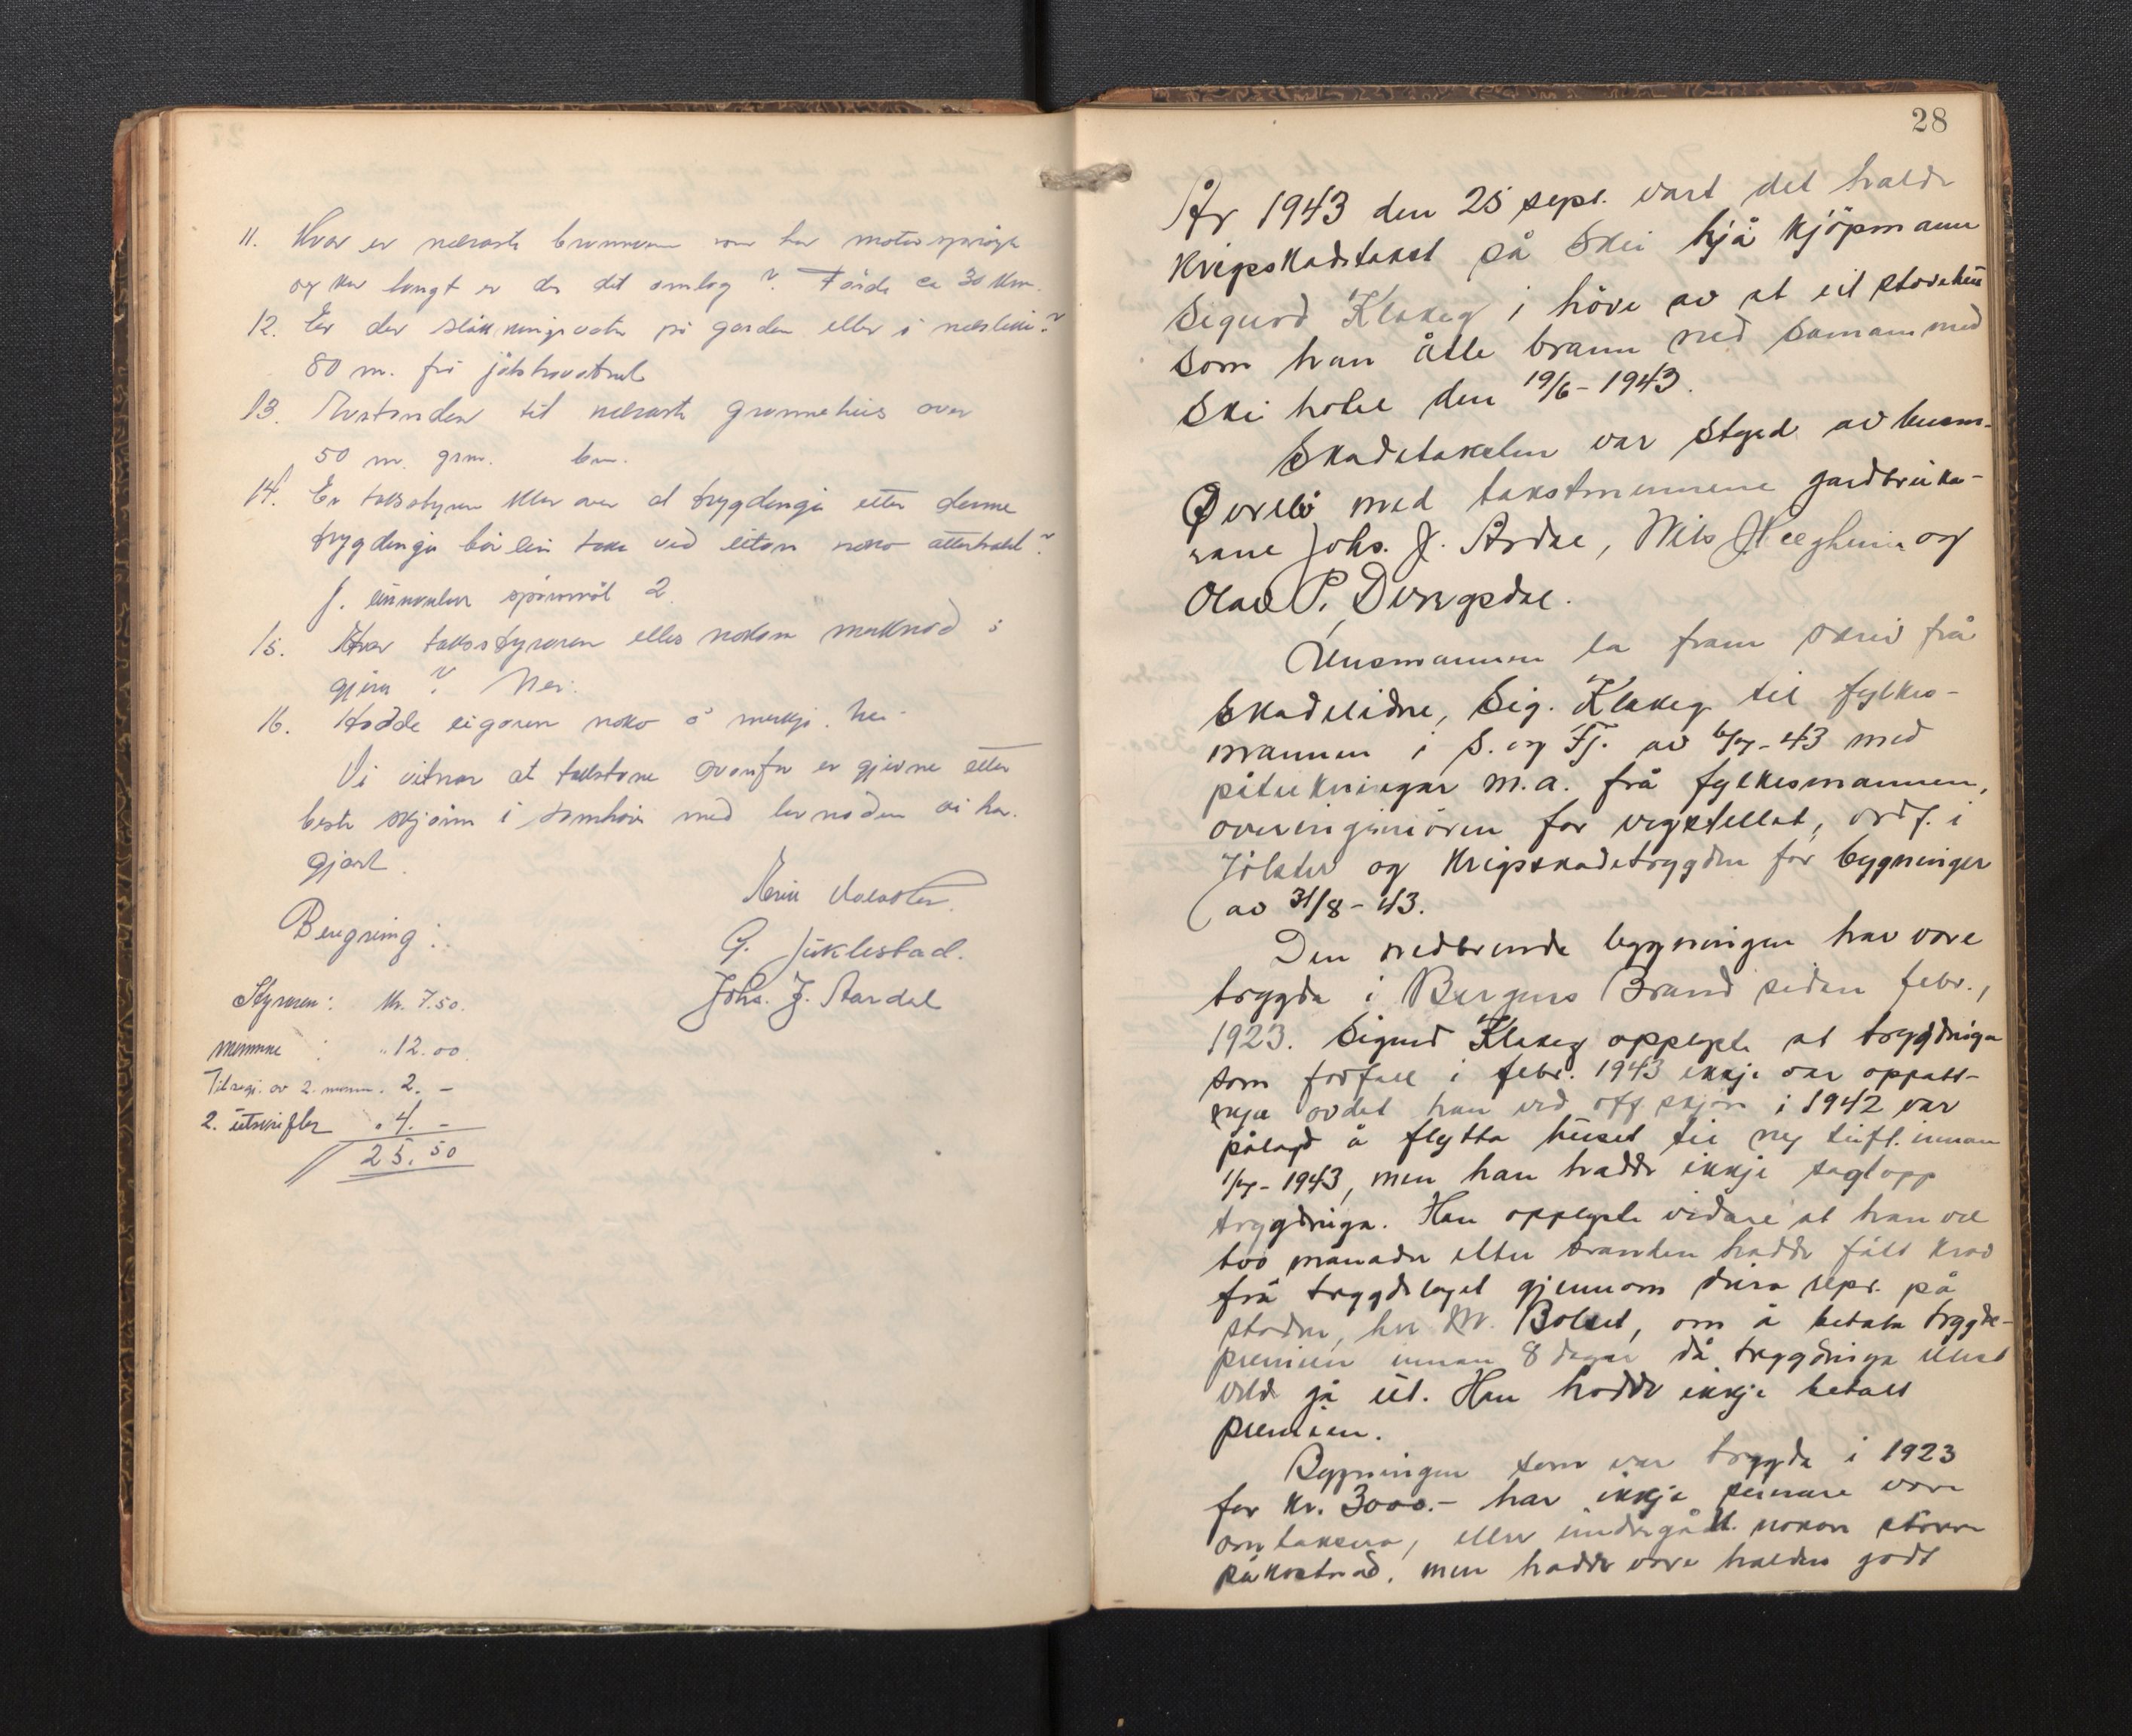 11. Kvar er næraste brunnvern som har motorsprøyte
og kor langt er der det omlag? Førde ca 30 km.
12. Er der sløkkningsvatn på garden eller i nærleiken?
80 m. frå Jølstravatnet
13. Avstanden til næraste grannehus over
50 m. grm. bm.
14. Er takstyraren klar over at trygdingi etter denne
trygdingi bør ein taka ved utan noko atterhald?
J. spörsmål 2.
15. Har takststyraren elles nokon merknad å
gjera? Nei.
16. Hadde eigaren noko å merkja. Nei.
Vi vitnar at takstane ovanfor er gjevne etter
beste skjönn i samhöve med lovnaden vi har
gjort.
Beregning:
G. Juklestad.
Johs. J. Aardal
Styraren: kr. 7.50.
mennene : " 12.00.
Tilsegj. av 2. menn. 2. -
2. utskrifter " 4. -
25.50
28
År 1943 den 25 sept. vart det halde
krigsskadetakst på Skei hjå kjöpmann
Sigurd Klakeg i höve av at eit stovehus
som han åtte brann ned saman med
Skei hotel den 19/6-1943.
Skadetaksten var styrd av lensm.
med takstmennene gardbruka-
rane Johs. J. Ardal, Nils og
Olav P. Dvergsdal.
Lensmannen la fram skriv frå
skadelidne, Sig. Klakeg til fylkes-
mannen i S. og Fj. av 6/7-43 med
påteikningar m.a. frå fylkesmannen,
overingeniören for vegstellet, ordf. i
Jölster og Krigsskadetrygden for bygninger
av 31/8-43.
Den nedbrende bygningen har vore
trygda i Bergens Brand sidan febr.,
1923. Sigurd Klakeg opplyste at trygdinga
som forfall i febr. 1943 ikkje var oppatt-
nya avdet han ved off skjön i 1942 var
pålagd å flytta huset til ny tuft innan
1/7-1943, men han hadde ikkje sagt opp
trygdinga. Han opplyste vidare at han vel
två månader etter branden hadde fått krav
frå trygdelaget gjennom deira repr. på
staden, herr M. Bolset, om å betala trygde-
premien innan 8 dagar då trygdinga elles
vilde gå ut. Han hadde ikkje betalt
premien.
Bygningen som var trygda i 1923
for kr. 3000.- har ikkje seinare vore
omtaksera, eller undergått nokon större
påkostnad, men hadde vore halden godt